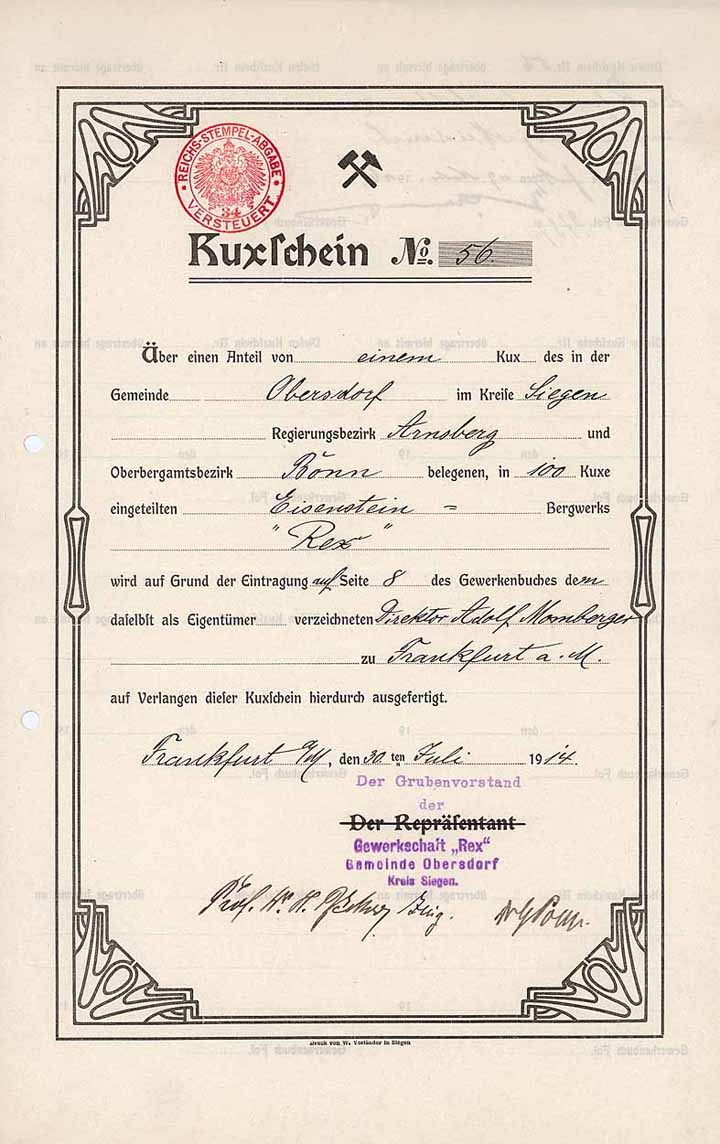 REICHS-STEMPEL-ABGABE
34
VERSTEUERT
Kuxſchein No. 56.
Über einen Anteil von einem Kux des in der
Gemeinde Obersdorf im Kreiſe Siegen
Regierungsbezirk Arnsberg und
Oberbergamtsbezirk Bonn belegenen, in 100 Kuxe
eingeteilten Eisenstein = Bergwerks
"Rex"
wird auf Grund der Eintragung auf Seite 8 des Gewerkenbuches dem
daſelbſt als Eigentümer verzeichneten Direktor Adolf Momberger
zu Frankfurt a. M.
auf Verlangen dieſer Kuxſchein hierdurch ausgefertigt.
Frankfurt a/M, den 30.ten Juli 1914.
Der Grubenvorstand
der
Der Repräſentant
Gewerkschaft „Rex“
Gemeinde Obersdorf
Kreis Siegen.
Prof.
Druck von W. Vorländer in Siegen